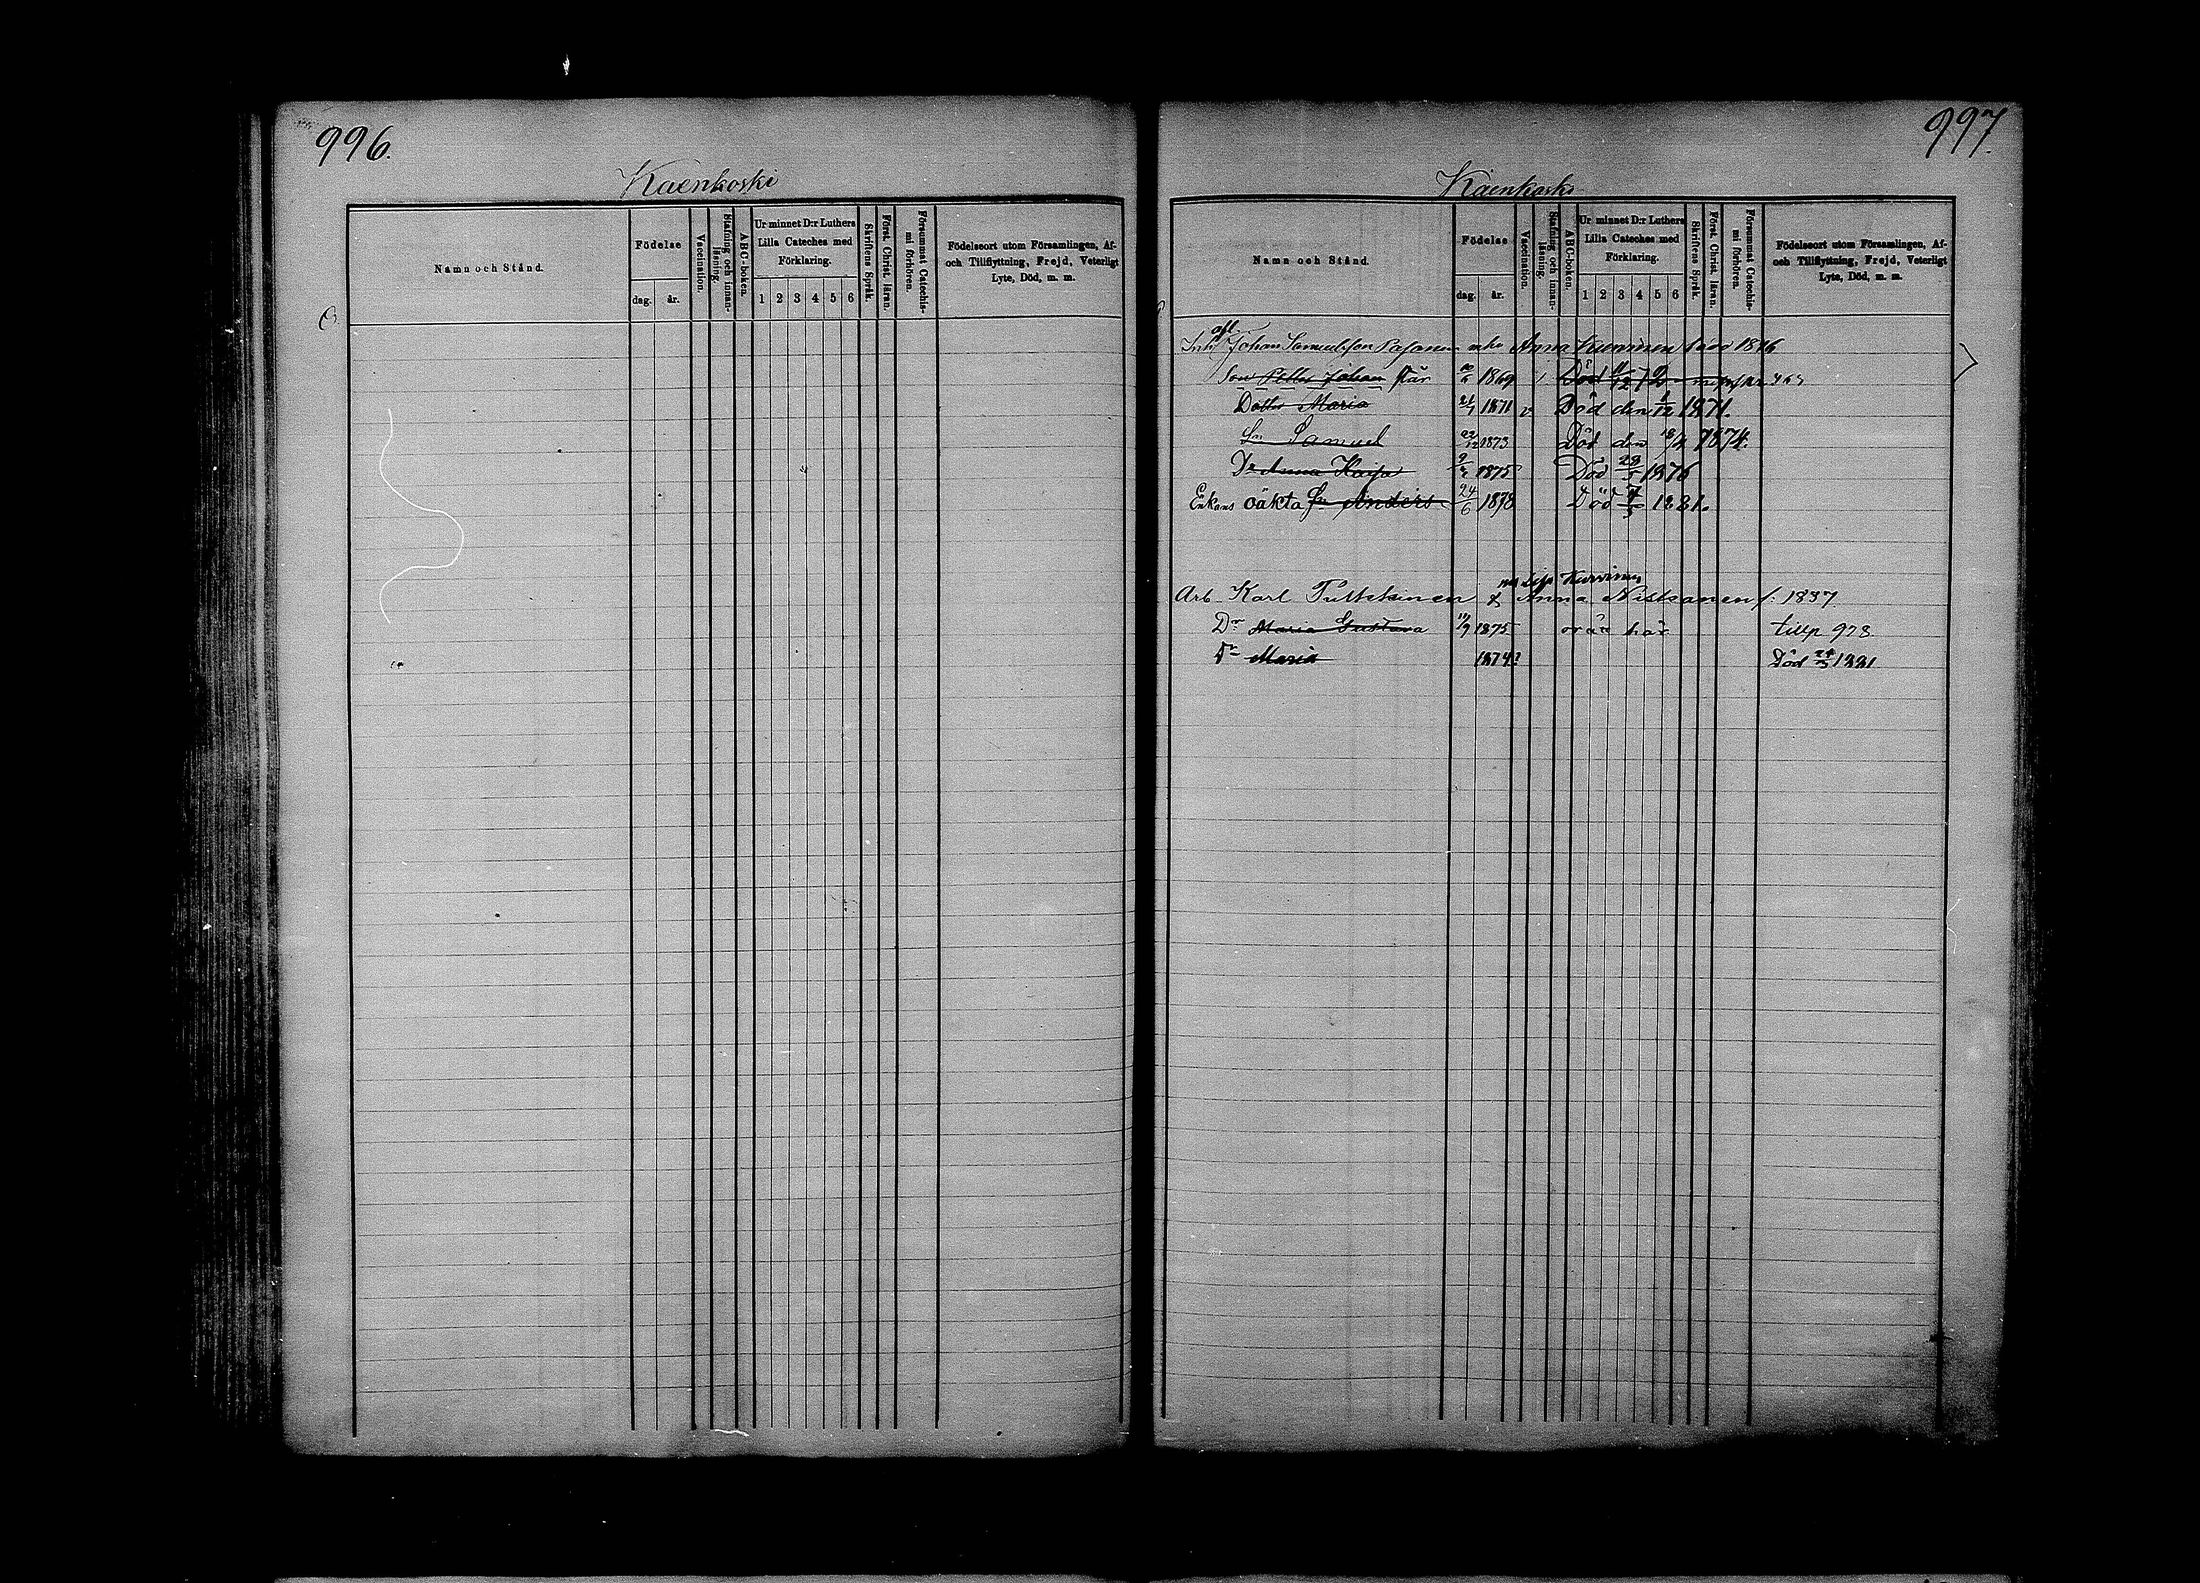 996.
Kaenkoski
Namn och Stånd.
Födelse
dag. år.
Vaccination.
Stafning och innan-
läsning.
ABC-boken.
Ur minnet D:r Luthers
Lilla Cateches med
Förklaring.
1 2 3 4 5 6
Skriftens Språk.
Först. Christ. läran.
Försummat Catechis-
mi förhören.
Födelseort utom Församlingen, Af-
och Tillflyttning, Frejd, Veterligt
Lyte, Död, m. m.
997.
Käenkoski
Namn och Stånd.
Födelse
dag. år.
Vaccination.
Stafning och innan-
läsning.
ABC-boken.
Ur minnet D:r Luthers
Lilla Cateches med
Förklaring.
1 2 3 4 5 6
Skriftens Språk.
Först. Christ. läran.
Försummat Catechis-
mi förhören.
Födelseort utom Församlingen, Af-
och Tillflyttning, Frejd, Veterligt
Lyte, Död, m. m.
afl.
Inh Johan Samuelsson Pasanen enka Anna Kurvinen
Son Petter Johan 1869 Död
Dotter Maria 21/7 1871 v Död den 1/12 1871.
Sn Samuel 22/12 1873 Död den 1874.
Dr Anna Kaisa 1875 Död 28/5 1876
Enkans oäkta Sn Anders 24/6 1878 Död 7/5 1881.
Kurvinen
Arb Karl Tuttckinen & Anna Niskanen f: 1837
Dr Maria Gustava 1875 har
Dr Maria 1874? Död 24/3 1881